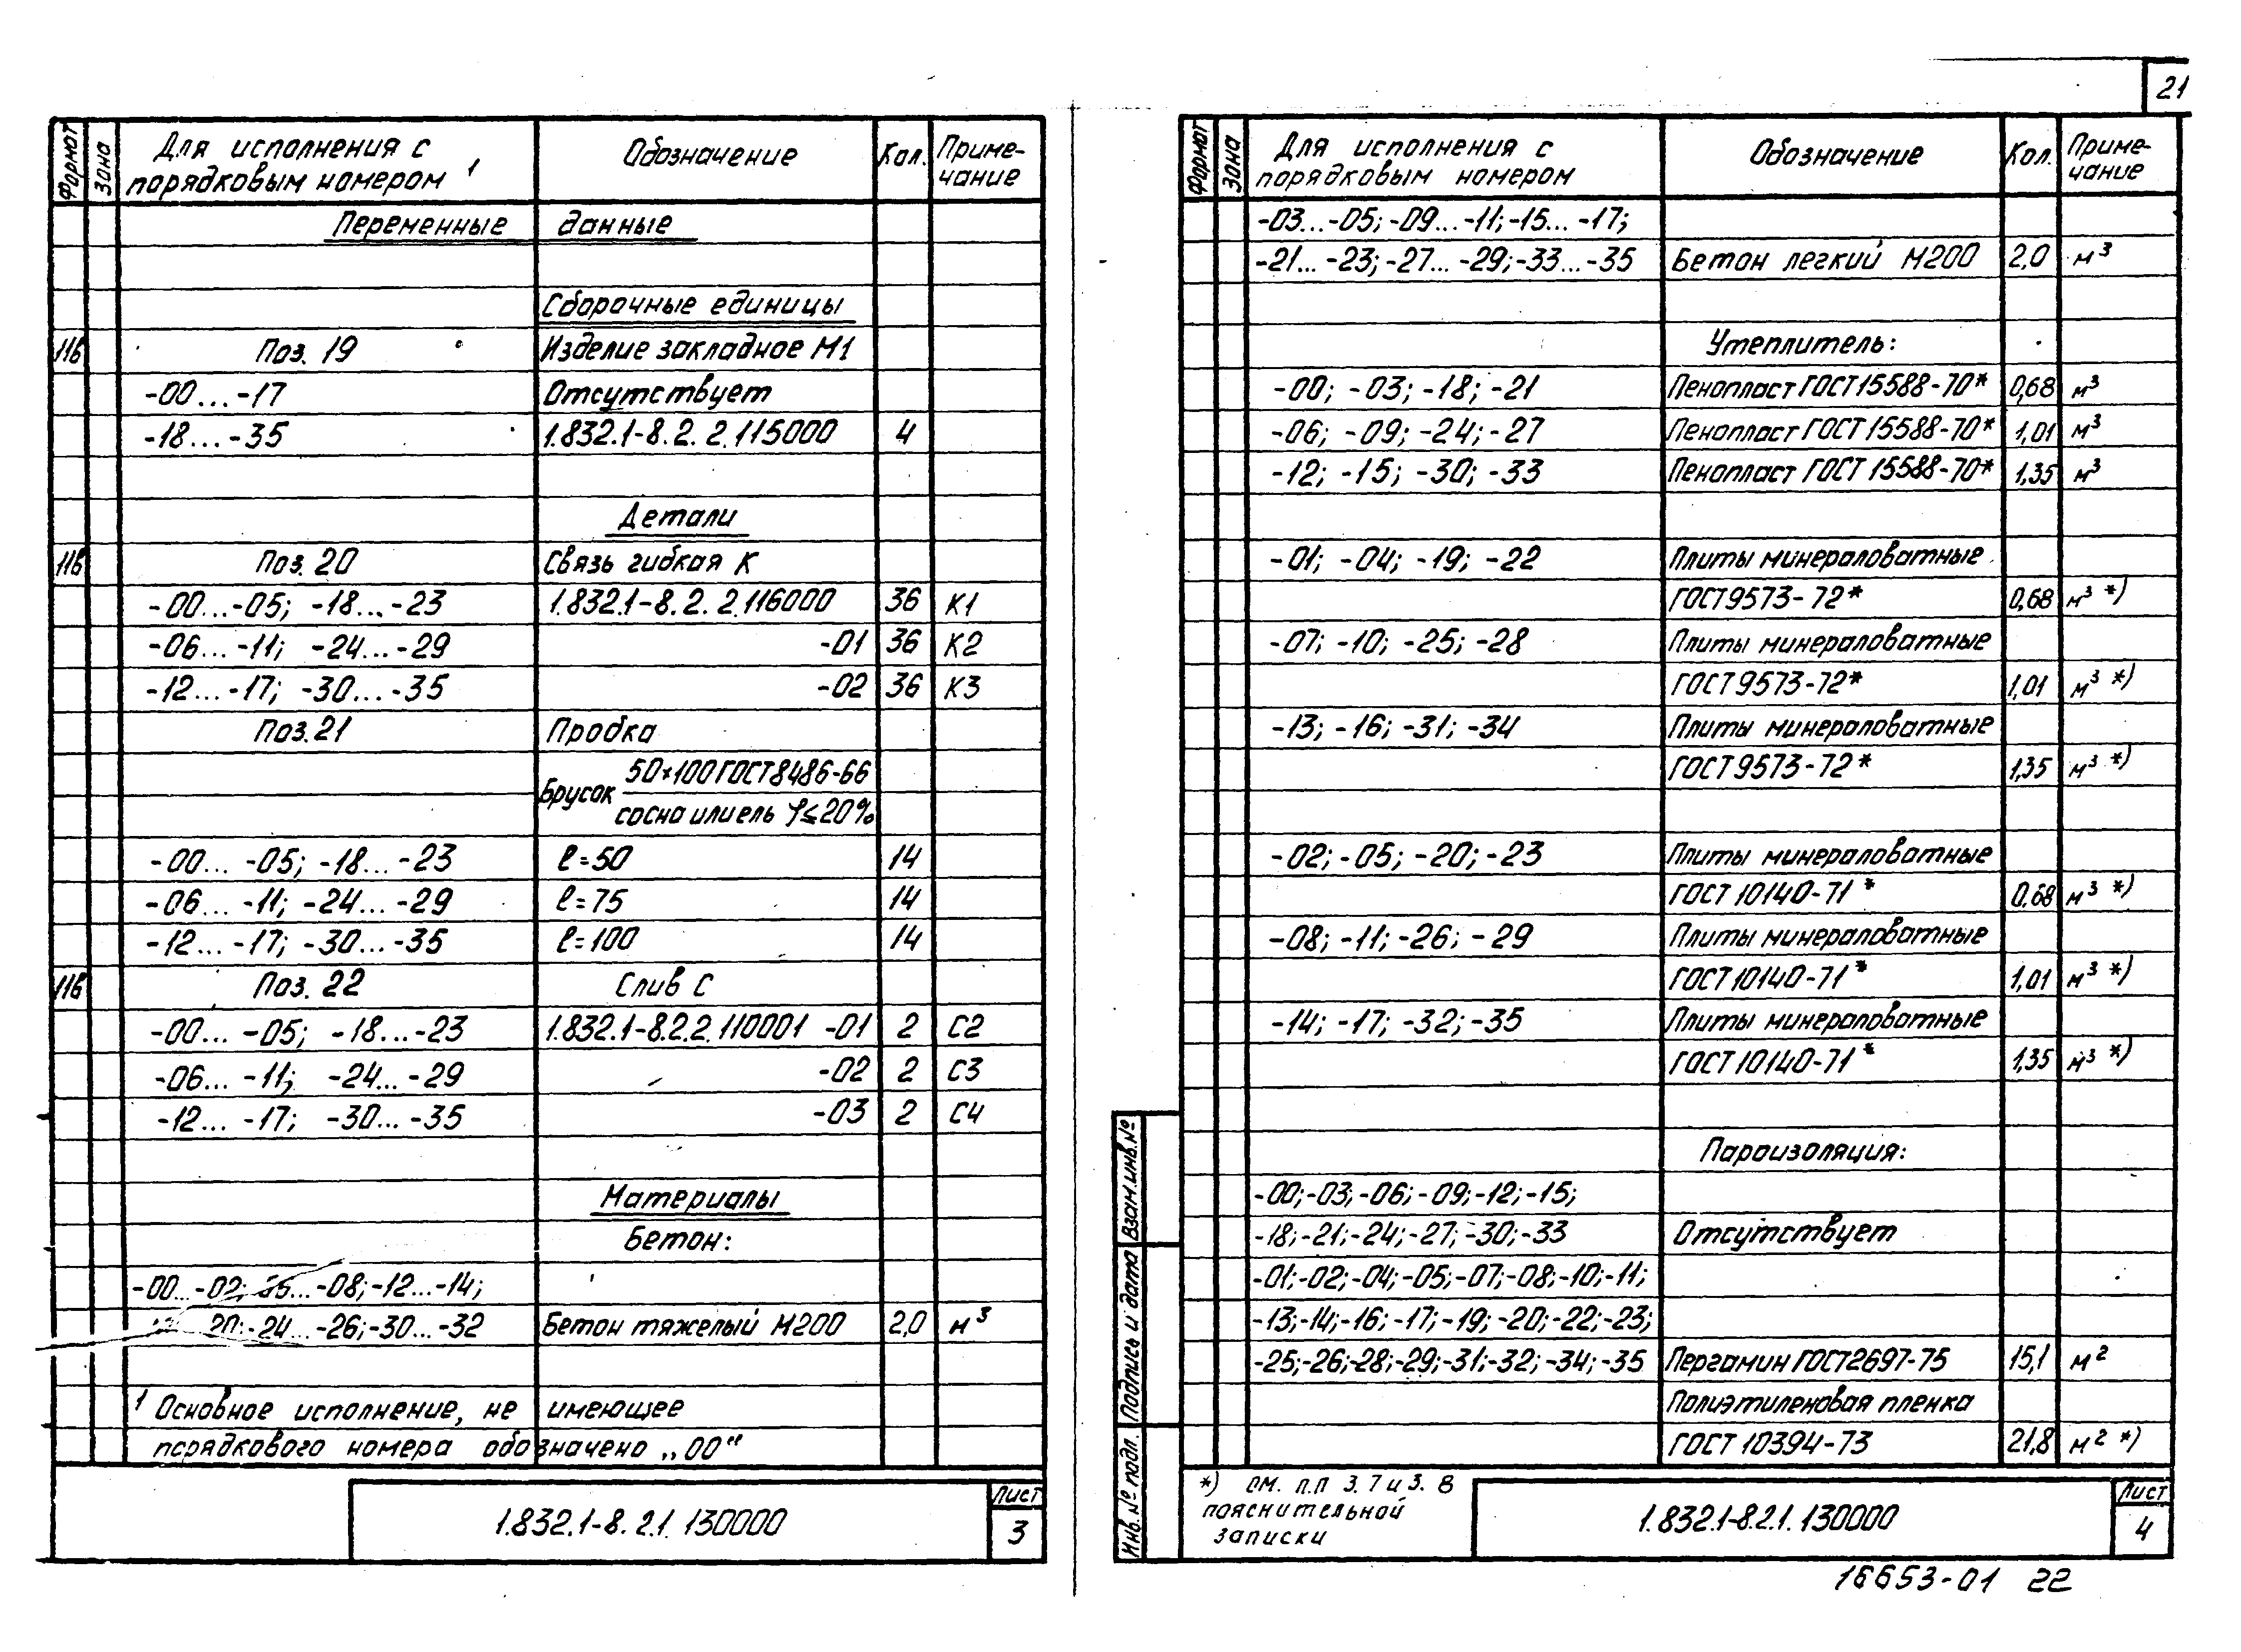 21
Формат Зона Для исполнения с порядковым номером 1 Обозначение Кол. Примечание
Переменные данные
Сборочные единицы
11в Поз. 19 Изделие закладное М1
-00...-17 Отсутствует
-18...-35 1.832.1-8.2.2.115000 4
Детали
11в Поз. 20 Связь гибкая К
-00...-05; -18...-23 1.832.1-8.2.2.116000 36 К1
-06...-11; -24...-29 -01 36 К2
-12...-17; -30...-35 -02 36 К3
Поз. 21 Пробка
Брусок 50×100 ГОСТ 8486-66
сосна или ель φ≤20%
-00...-05; -18...-23 ℓ=50 14
-06...-11; -24...-29 ℓ=75 14
-12...-17; -30...-35 ℓ=100 14
11в Поз. 22 Слив С
-00...-05; -18...-23 1.832.1-8.2.2.110001 -01 2 С2
-06...-11; -24...-29 -02 2 С3
-12...-17; -30...-35 -03 2 С4
Материалы
Бетон:
-00...-02; ...-08; -12...-14;
20; -24...-26; -30...-32 Бетон тяжелый М200 2,0 м³
1 Основное исполнение, не имеющее
порядкового номера обозначено „00“
1.832.1-8.2.1.130000
Лист
3
Формат Зона Для исполнения с порядковым номером Обозначение Кол. Примечание
-03...-05; -09...-11; -15...-17;
-21...-23; -27...-29; -33...-35 Бетон легкий М200 2,0 м³
Утеплитель:
-00; -03; -18; -21 Пенопласт ГОСТ 15588-70* 0,68 м³
-06; -09; -24; -27 Пенопласт ГОСТ 15588-70* 1,01 м³
-12; -15; -30; -33 Пенопласт ГОСТ 15588-70* 1,35 м³
-01; -04; -19; -22 Плиты минераловатные
ГОСТ 9573-72* 0,68 м³ *)
-07; -10; -25; -28 Плиты минераловатные
ГОСТ 9573-72* 1,01 м³ *)
-13; -16; -31; -34 Плиты минераловатные
ГОСТ 9573-72* 1,35 м³ *)
-02; -05; -20; -23 Плиты минераловатные
ГОСТ 10140-71* 0,68 м³ *)
-08; -11; -26; -29 Плиты минераловатные
ГОСТ 10140-71* 1,01 м³ *)
-14; -17; -32; -35 Плиты минераловатные
ГОСТ 10140-71* 1,35 м³ *)
Пароизоляция:
-00; -03; -06; -09; -12; -15;
-18; -21; -24; -27; -30; -33 Отсутствует
-01; -02; -04; -05; -07; -08; -10; -11;
-13; -14; -16; -17; -19; -20; -22; -23;
-25; -26; -28; -29; -31; -32; -34; -35 Пергамин ГОСТ 2697-75 15,1 м²
Полиэтиленовая пленка
ГОСТ 10394-73 21,8 м² *)
*) см. п.п 3.7 и 3.8
пояснительной
записки
1.832.1-8.2.1.130000
Лист
4
Инв. № подл. Подпись и дата Взам. инв. №
16653-01 22